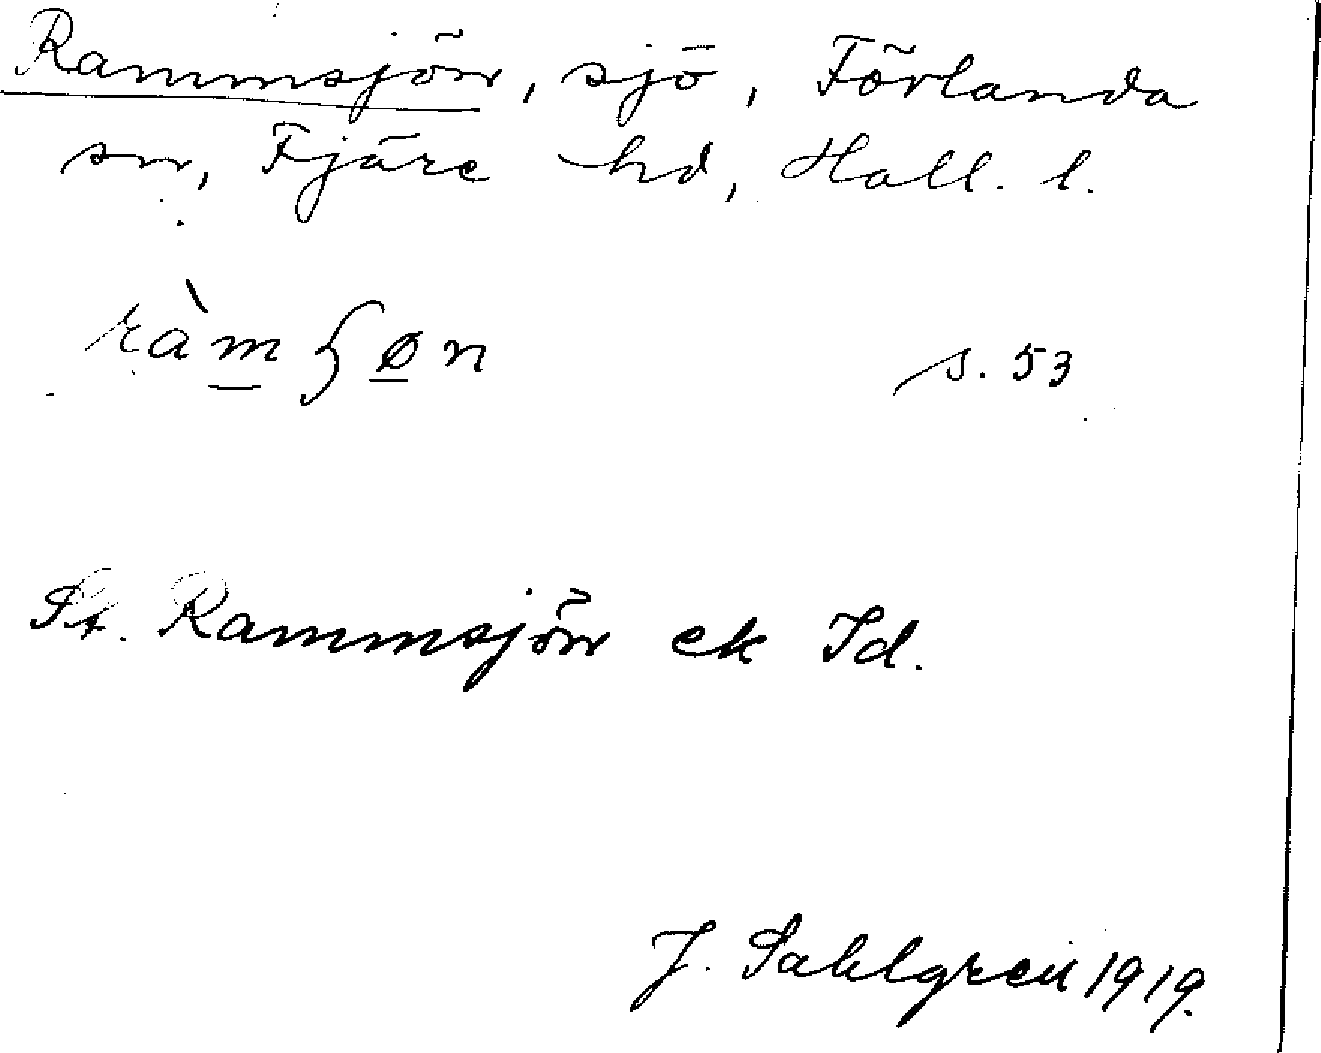 Rammsjön, sjö, Förlanda
sn, Fjäre hd, Hall. l.
ràmɧøn s. 53
St. Rammsjön ek Id.
J. Sahlgren 1919.